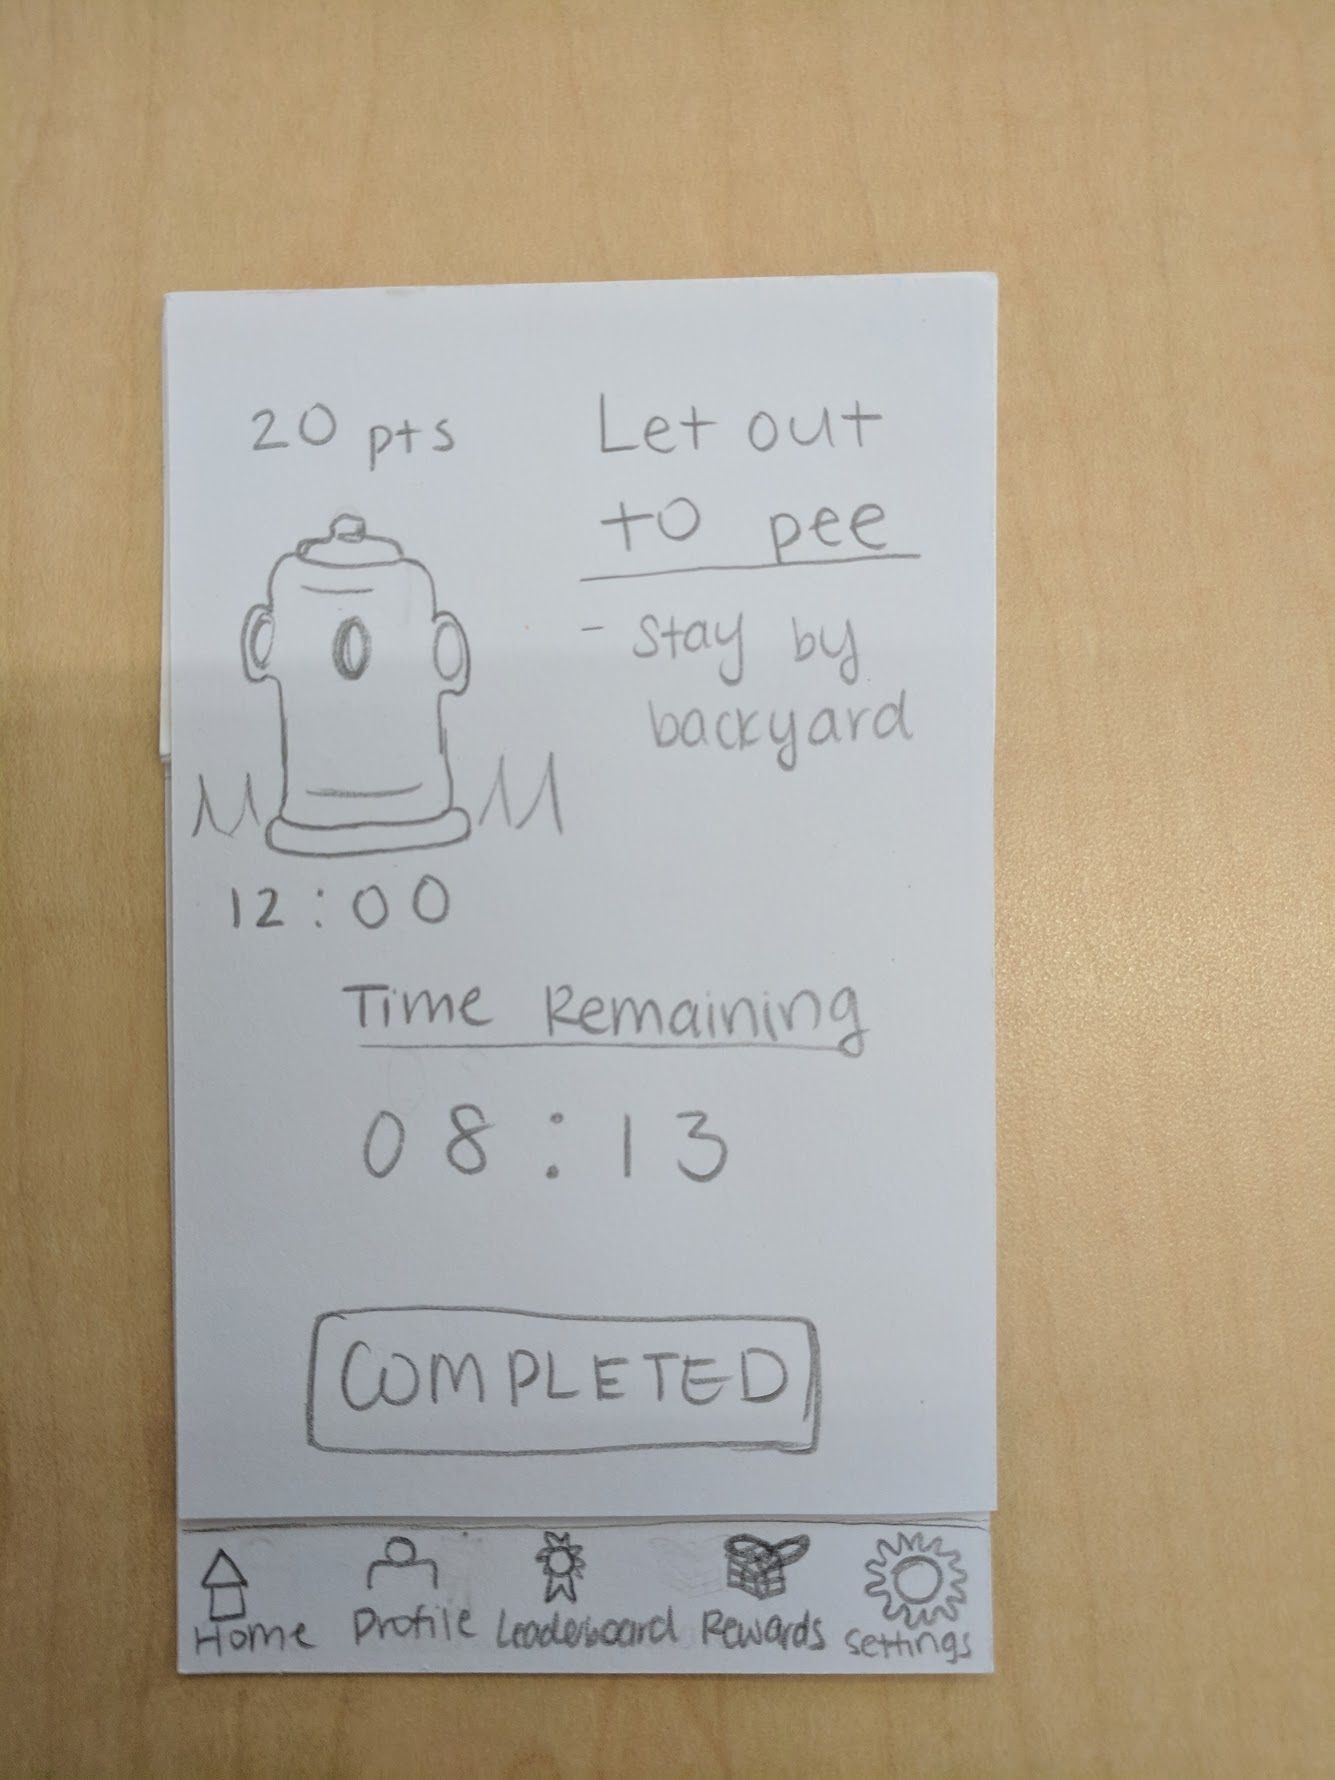 20 pts
Let out
to pee
- stay by
backyard
12:00
Time Remaining
08:13
COMPLETED
Home Profile Leaderboard Rewards Settings